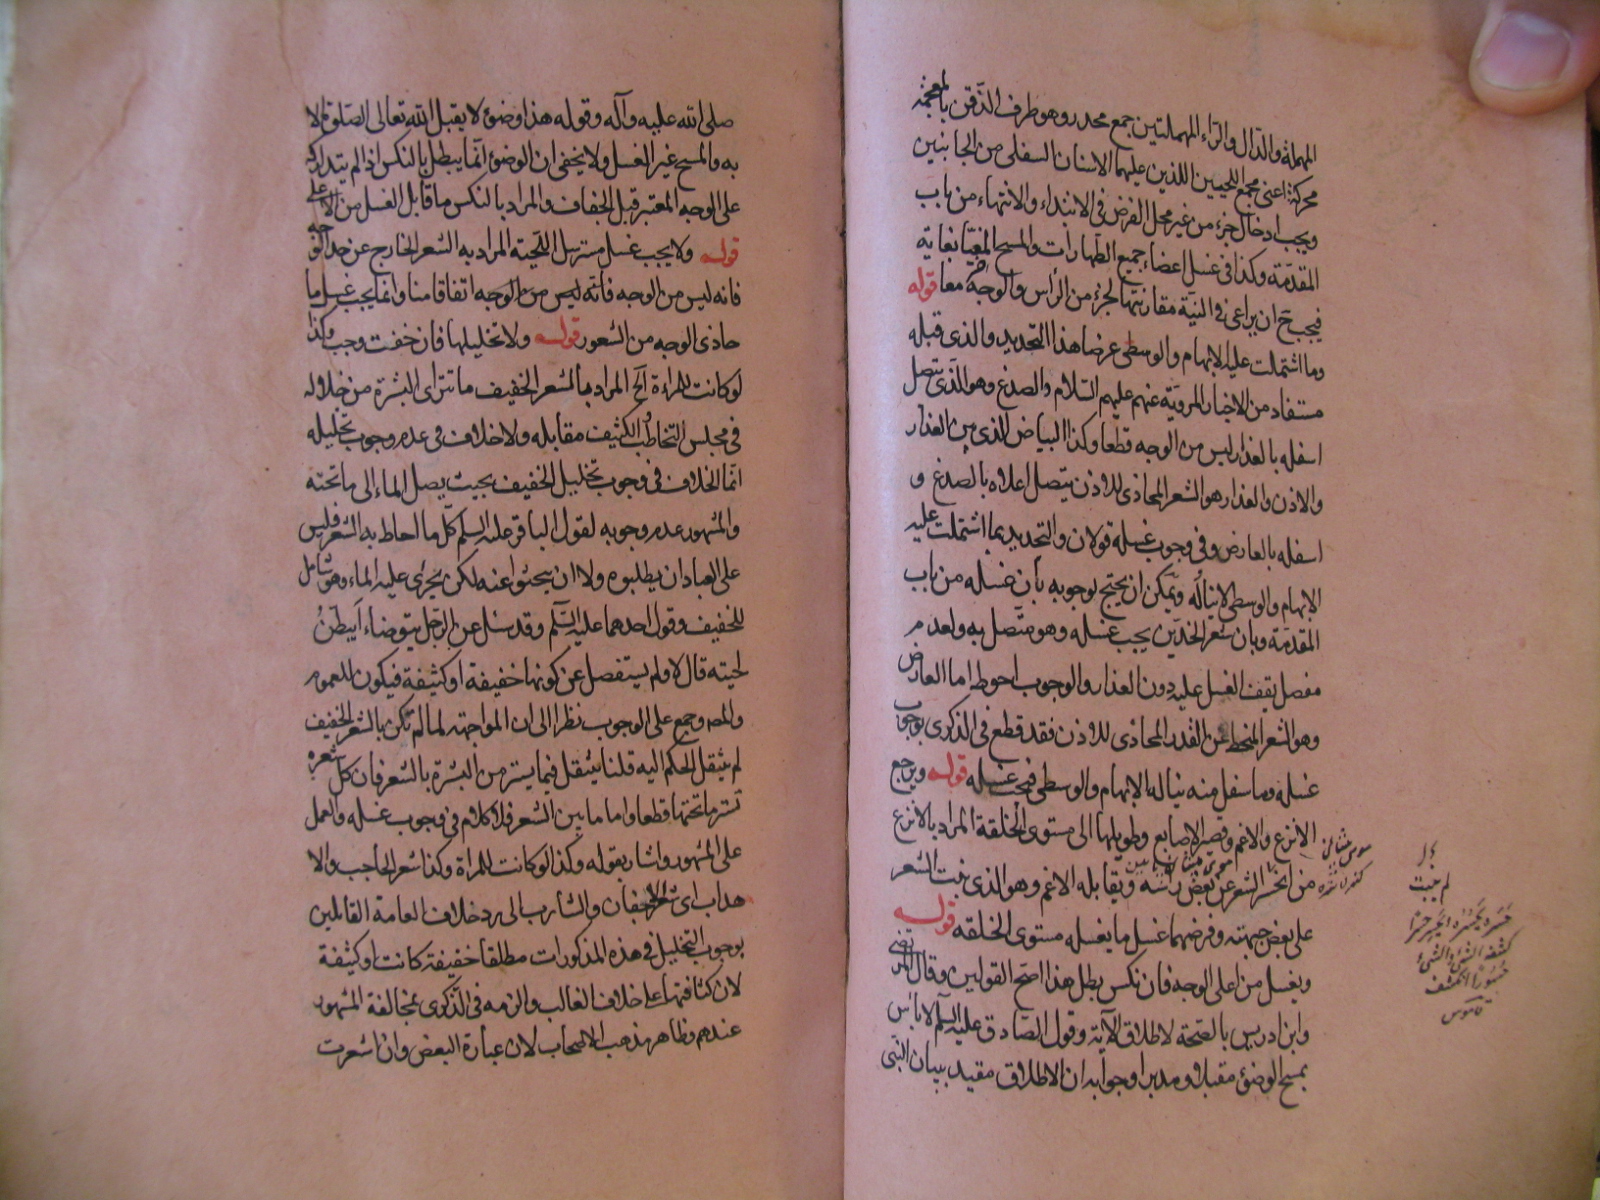 المهملة والدال والراء المهملتين جمع محدر وهو طرف الذقن بالمعجمة
محركة اعنى مجمع اللحيين اللذين عليهما الاسنان السفلى من الجانبين
ويجب ادخال جزء من غير محل الفرض فى الابتداء والانتهاء من باب
المقدمة وكذا فى غسل اعضاء جميع الطهارات والمسح المغيا بغاية
فيجب ح ان يراعى فى النية مقارنتها لجزء من الرأس والوجه معا قوله
وما اشتملت عليه الابهام والوسطى عرضا هذا التحديد والذى قبله
مستفاد من الاخبار المروية عنهم عليهم السلام والصدغ وهو الذى يتصل
اسفله بالعذار ليس من الوجه قطعا وكذا البياض الذى بين العذار
والاذن والعذار هو الشعر المحاذى للاذن يتصل اعلاه بالصدغ و
اسفله بالعارض وفى وجوب غسله قولان والتحديد بما اشتملت عليه
الابهام والوسطى لا يناله ويمكن ان يحتج لوجوبه بأن غسله من باب
المقدمة وبان شعر الخدين يجب غسله وهو متصل به ولعدم
مفصل يقف الغسل عليه دون العذار والوجوب احوط اما العارض
وهو الشعر المنحط عن القدر المحاذى للاذن فقد قطع فى الذكرى بوجوب
غسله وما سفل منه يناله الابهام والوسطى فيجب غسله قوله ويرجع
الانزع والاغم وقصير الاصابع وطويلها الى مستوى الخلقة المراد بالانزع
من انحسر الشعر عن بعض رأسه ويقابله الاغم وهو الذى ينبت الشعر
على بعض جبهته وفرضهما غسل ما يغسله مستوى الخلقه قوله
ويغسل من اعلى الوجه فان نكس بطل هذا اصح القولين وقال المرتضى
وابن ادريس بالصحة لاطلاق الآية وقول الصادق عليه السلم لا بأس
بمسح الوضوء مقبلا ومدبرا وجوابه ان الاطلاق مقيد ببيان النبى
لم ينبت
كشفه
الشئ
قاموس
صلى الله عليه وآله وقوله هذا وضوء لا يقبل الله تعالى الصلوة الا
به والمسح غير الغسل ولا يخفى ان الوضوء انما يبطل بالنكس اذا لم يتداركه
على الوجه المعتبر قبل الجفاف والمراد بالنكس ما قابل الغسل من الاعلى
قوله ولا يجب غسل مسترسل اللحيته المراد به الشعر الخارج عن حد الوجه
فانه ليس من الوجه فانه ليس من الوجه اتفاقا منا وانما يجب غسل ما
حاذى الوجه من الشعور قوله ولا تخليلها فان خفت وجب وكذا
لو كانت للمراءة آلخ المراد بالشعر الخفيف ما تترائى البشرة من خلاله
فى مجلس التخاطب والكثيف مقابله ولا خلاف فى عدم وجوب تخليله
انما الخلاف فى وجوب تخليل الخفيف بحيث يصل الماء الى ما تحته
والمشهور عدم وجوبه لقول الباقر عليه السلم كل ما احاط به الشعر فليس
على العباد ان يطلبوه ولا ان يبحثوا عنه لكن يجرى عليه الماء وهو شامل
للخفيف وقول احدهما عليه السلم وقد سئل عن الرجل يتوضاء ايبطن
لحيته قال لا ولم يستفصل عن كونها خفيفة او كثيفة فيكون للعموم
والمصه وجمع على الوجوب نظرا الى ان المواجهة لما لم تكن بالشعر الخفيف
لم ينتقل الحكم اليه قلنا ينتقل فيما يستر من البشرة بالشعر فان كل شعرة
تستر ما تحتها قطعا واما ما بين الشعر فلا كلام فى وجوب غسله والعمل
على المشهور واشار بقوله وكذا لو كانت للمراة وكذا شعر الحاجب والا
هداب اى شعر الاجفان والشارب الى رد خلاف العامة القائلين
بوجوب التخليل فى هذه المذكورات مطلقا خفيفة كانت او كثيفة
لان كثافتها على خلاف الغالب والزمه فى الذكرى بمخالفة المشهور
عندهم وظاهر مذهب الاصحاب لان عبارة البعض وان اشعرت